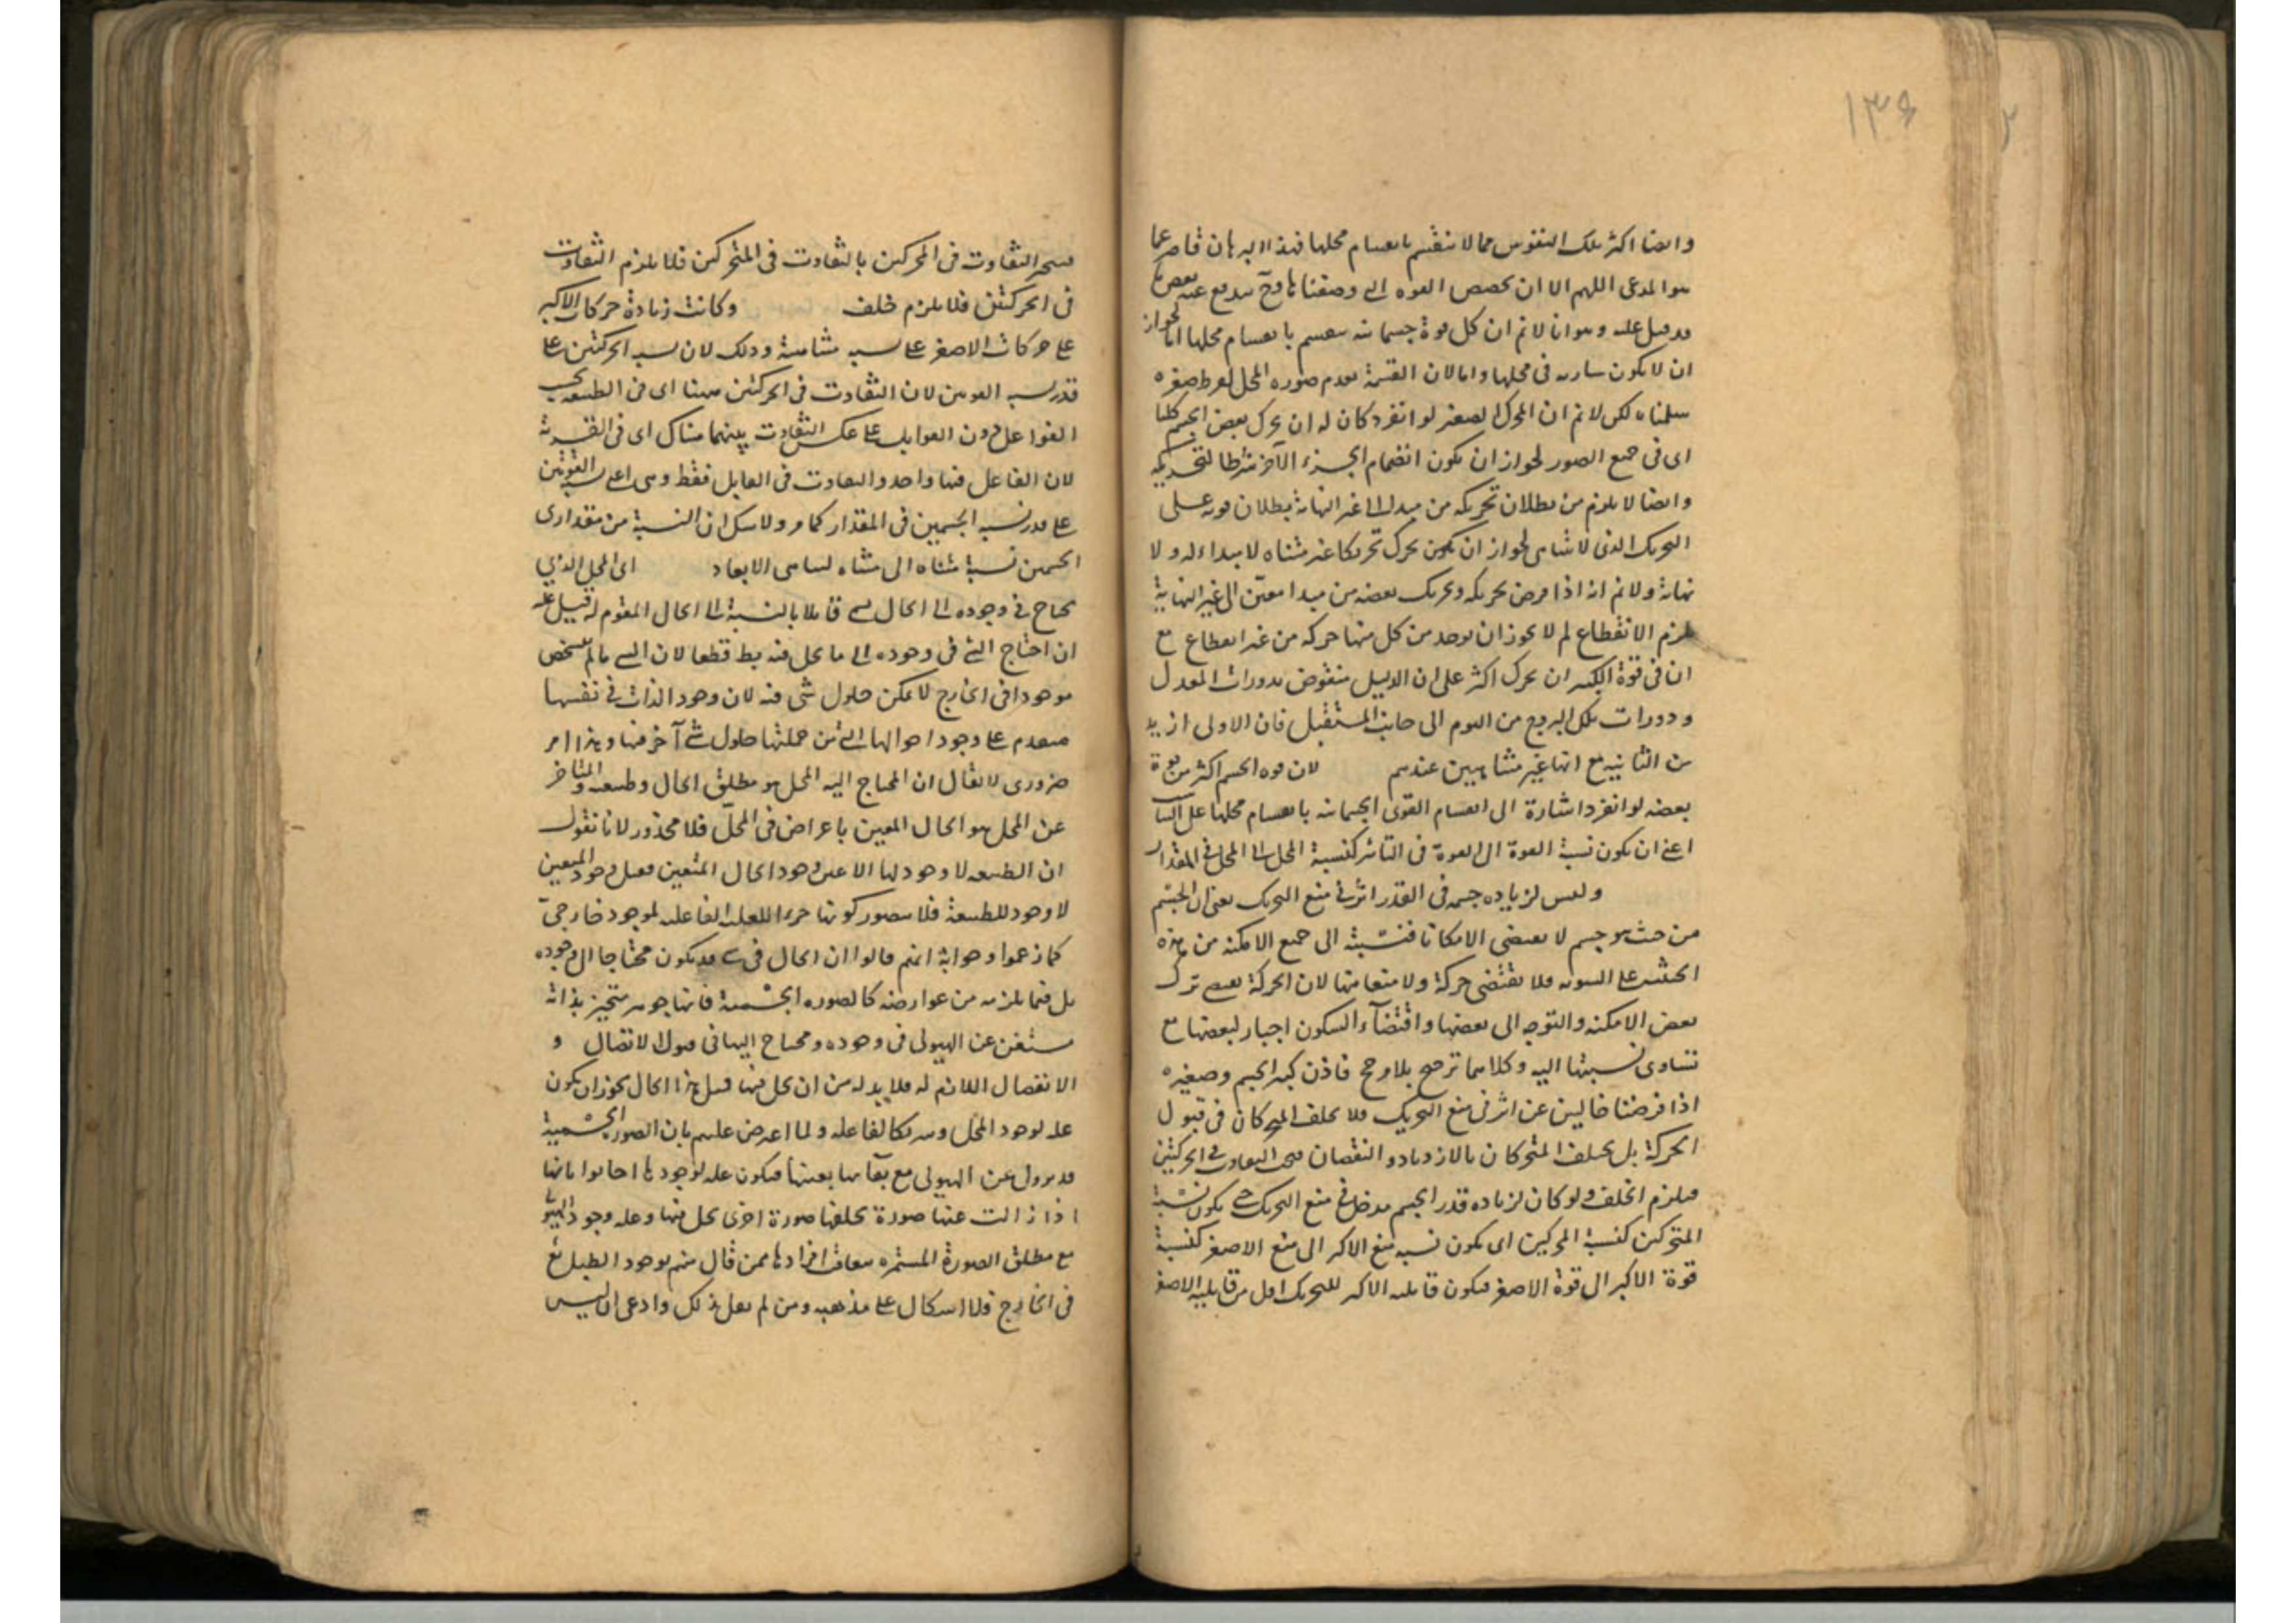 ١٣٤
وايضا اكثر تلك النفوس مما لا ينقسم بانقسام محلها فهذا البرهان قاصر عما
هو المدعى اللهم الا ان يخصص القوه التي وصفناها وح يندفع عنه بعض ما
قد قيل عليه وهو انا لا نم ان كل قوة جسمانيه ينقسم بانقسام محلها اما لجواز
ان لا يكون ساريه في محلها واما لان القسمة يعدم صوره المحل لفرط صغره
سلمناه لكن لا نم ان المحرك الصغير لو انفرد كان له ان يحرك بعض الجسم كلما
اى فى جميع الصور لجواز ان يكون انضمام الجزء الآخر شرطا لتحريكه
وايضا لا يلزم من بطلان تحريكه من مبدا الى غير النهاية بطلان قوته على
التحريك الذى لا يتناهى لجواز ان يكون يحرك تحريكا غير متناه لا مبداء له ولا
نهاية ولا نم انه اذا فرض تحريكه وتحريك بعضه من مبدا معيّن الى غير النهاية
يلزم الانقطاع لم لا يجوز ان يوجد من كل منها حركه من غير انقطاع مع
ان فى قوة الكبير ان يحرك اكثر على ان الدليل منقوض بدورات المعدل
ودورات فلك البروج من اليوم الى جانب المستقبل فان الاولى ازيد
من الثانيه مع انها غير متناهيين عندهم لان قوه الجسم اكثر من قوة
بعضه لو انفرد اشارة الى انقسام القوى الجسمانيه بانقسام محلها على التناسب
اعنى ان يكون نسبة القوة الى القوة فى التاثير كنسبة المحل الى المحل فى المقدار
وليس لزياده جسمه فى القدر اثر فى منع التحريك يعنى ان الجسم
من حيث هو جسم لا يقتضى الا مكانا فنسبته الى جميع الامكنه من هذه
الحيثيه على السويه فلا يقتضى حركة ولا متعاميها لان الحركة يقتضى ترك
بعض الامكنه والتوجه الى بعضها واقتضآء السكون اجبار لبعضها مع
تساوى نسبتها اليه وكلاهما ترجيح بلا مرجح فاذن كبير الجسم وصغيره
اذا فرضنا خاليين عن اثر فى منع التحريك فلا يختلف المحركان فى قبول
الحركة بل يختلف المتحركان بالازدياد والنقصان فيجب التفاوت فى الحركتين
فيلزم الخلف ولو كان لزياده قدر الجسم مدخل فى منع التحريك حتى يكون نسبة
المتحركين كنسبة المحركين اى يكون نسبه منع الاكبر الى منع الاصغر كنسبة
قوة الاكبر الى قوة الاصغر فيكون قابليه الاكبر للتحريك اقل من قابليه الاصغر
التفاوت فى المحركين بالتفاوت فى المتحركين فلا يلزم التفاوت
فى الحركتين فلا يلزم خلف وكانت زيادة حركات الاكبر
على حركات الاصغر على نسبه متناهية وذلك لان نسبه الحركتين على
قدر نسبه القوتين لان التفاوت فى الحركتين ههنا اى فى الطبيعيه بحسب
الفواعل دون القوابل على عكس التفاوت بينهما هناك اى فى القسرية
لان الفاعل فيها واحد والتفاوت فى القابل فقط وهى اعنى نسبة القوتين
على قدر نسبه الجسمين فى المقدار كما مر ولا شك ان النسبة من مقدارى
الجسمين نسبة متناه الى متناه لتناهى الابعاد اى المحل الذي
يحتاج فى وجوده الى الحال يسمى قابلا بالنسبة الى الحال المقوم له قيل عليه
ان احتياج الشئ فى وجوده الى ما يحل فيه بط قطعا لان الشئ ما لم يتشخص
موجودا فى الخارج لا يمكن حلول شئ فيه لان وجود الذات فى نفسها
متقدم على وجود احوالها التى من جملتها حلول شئ آخر فيها وهذا امر
ضرورى لا يقال ان المحتاج اليه المحل هو مطلق الحال وطبيعته والمتاخر
عن المحل هو الحال المعين باعراض فى المحلّ فلا محذور لانا نقول
ان الطبيعه لا وجود لها الا عين وجود الحال المتعين فقبل وجود المتعين
لا وجود للطبيعة فلا يتصور كونها جزءا للعله الفاعليه لموجود خارجىّ
كما زعموا وجوابه انهم قالوا ان الحال فى شئ قد يكون محتاجا الى وجوده
بل فيما يلزمه من عوارضه كالصوره الجسمية فانها جوهر متحيز بذاته
مستغن عن الهيولى فى وجوده ومحتاج اليها فى قبول الاتصال و
الانفصال اللازم له فلا بد له من ان يحل فيها فمثل هذا الحال يجوز ان يكون
عله لوجود المحل وشريكا لفاعله ولما اعترض عليهم بان الصور الجسمية
قد يزول عن الهيولى مع بقآئها بعينها فيكون عله لوجودها اجابوا بانها
اذا زالت عنها صورة يخلفها صورة اخرى يحل فيها وعله وجود الهيولى
مع مطلق الصورة المستمره بتعاقب افرادها فمن قال منهم بوجود الطبايع
فى الخارج فلا اشكال على مذهبه ومن لم يقل بذلك وادعى ان ليس